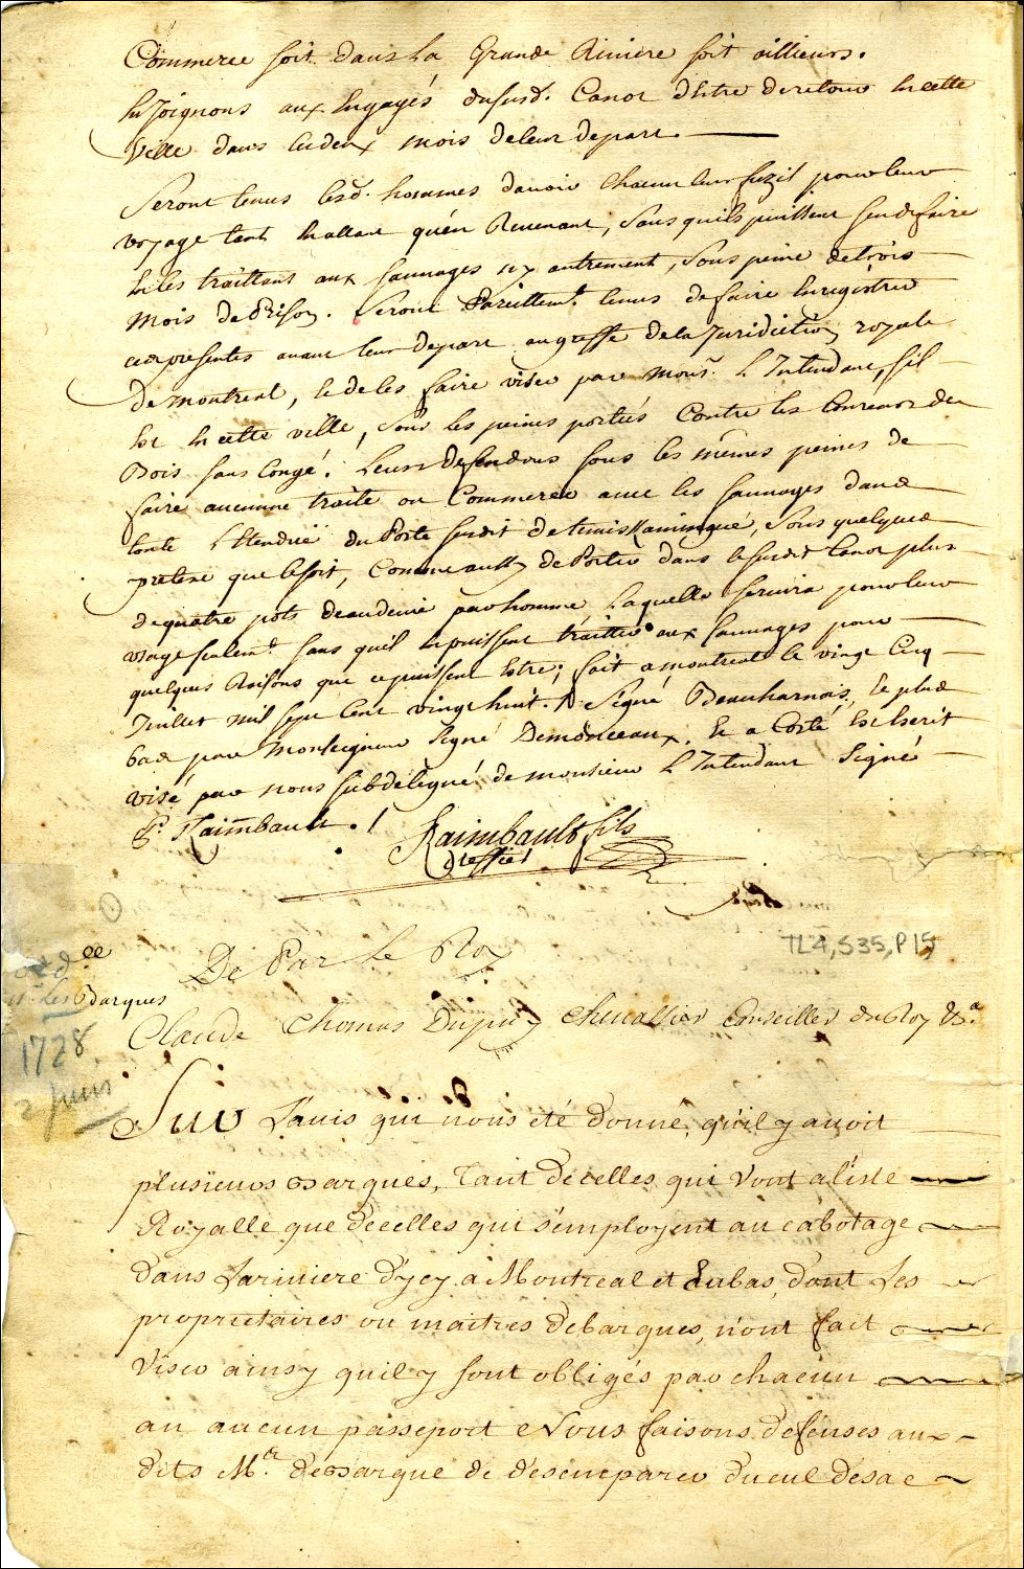 Commerce soit dans La Grande Riviere soit aillieurs.
Enjoignons aux Engagés dususd. Canot d'Estre de retour en cette
Ville dans les deux mois de leur depart.
Seront tenus lesd. hommes davoir chacun leur fuzil pour leur
voyage tant En allant qu'en Revenant, sans quils puissent sen defaire
En les traittant aux sauvages ny autrement, sous peine de trois
mois de Prison. Seront Pareillemt. tenus de faire Enregistrer
ces presentes avant leur depart au greffe de la Juridiction royale
de montreal, Et de les faire viser par Monsr. L'Intendant, sil
Est En cette ville, sous les peines portées Contre les Coureurs de
Bois sans Congé. Leurs defendons sous les mêmes peines de
faire aucunne traite ou Commerce avec les sauvages dans
toute L'Etenduë du Poste susdit de temiskamingué, sous quelque
pretexte que ce soit, Comme aussy de Porter dans le susdit Canot plus
de quatre pots deaudevie par homme, Laquelle servira pour leur
usage seulemt. sans quil la puissent traitter aux sauvages pour
quelques Raisons que ce puissent Estre; fait a montreal le vingt Cinq
Juillet mil sept Cent vingt huit. Signé Beauharnois, Et plus
bas par Monseigneur Signé Demonceaux. Et a Costé Est Escrit
visé par nous subdelegué de monsieur L'Intendant Signé
P. Raimbault ./
Raimbault fils
Greffier
TL4, S35, P15
De Par Le Roy
ordce
Les Barques
1728
2 juin
Claude Thomas Dupuy Chevallier Conseiller du Roy &a.
Sur L'avis qui nous été donné, qu'il y avoit
plusieurs Barques, Tant de celles qui vont a l'isle
Royalle que de celles qui s'employent au cabotage
dans Lariviere d'ycy a Montreal et Enbas, dont Les
proprietaires ou maitres de barques, n'ont fait
Viser ainsy quil y sont obligés par chacun
an aucun passeport Nous faisons defenses aux
dits Mtr. de Barque de desemparer du cul de sac